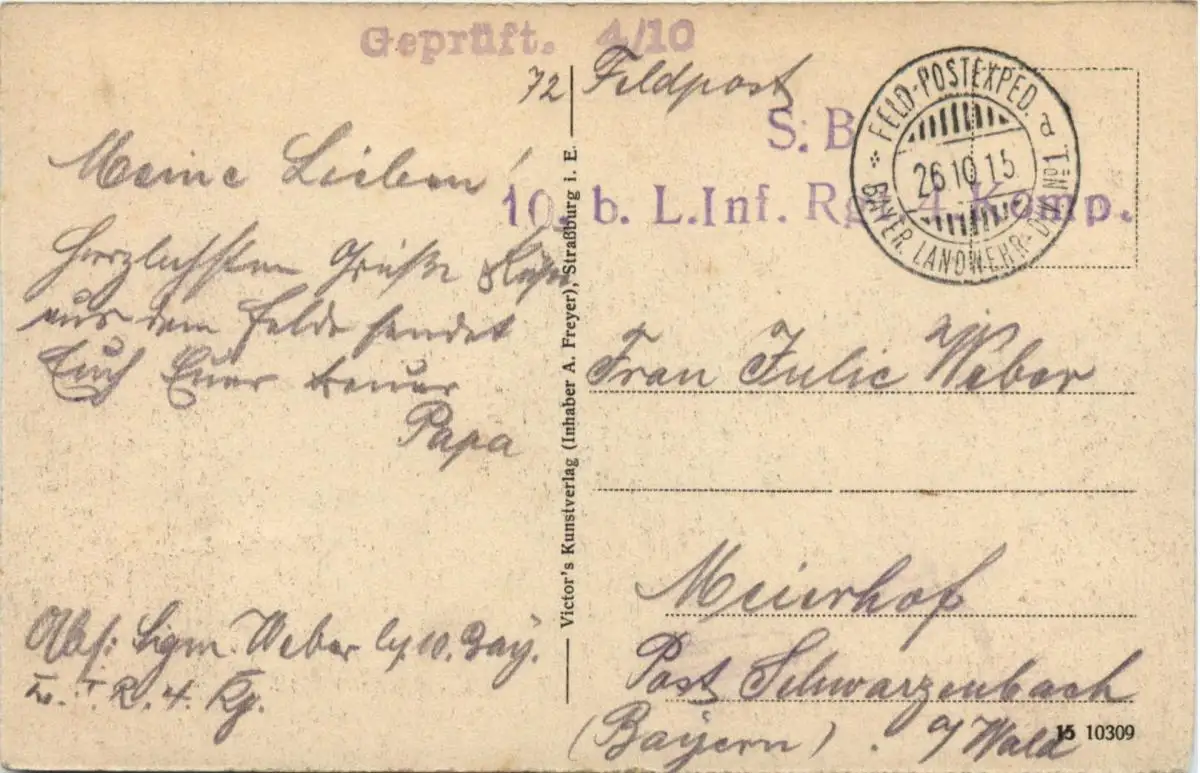 Geprüft. 4/10
72 Feldpost
S. B.
10. b. L.Inf. Rgt. 4 Komp.
FELD-POSTEXPED. d
26 10 15
BAYER. LANDWEHR-DIV. No 1
Meine Lieben!
Herzlichsten Grüße & Küße
aus dem Felde sendet
Euch Euer treuer
Papa
Abs: Sigm. Weber 10. Bay.
L. I. R. 4. Kg.
Victor's Kunstverlag (Inhaber A. Freyer), Straßburg i. E.
Frau Julie Weber
Meierhof
Post Schwarzenbach
(Bayern) a/Wald
15 10309